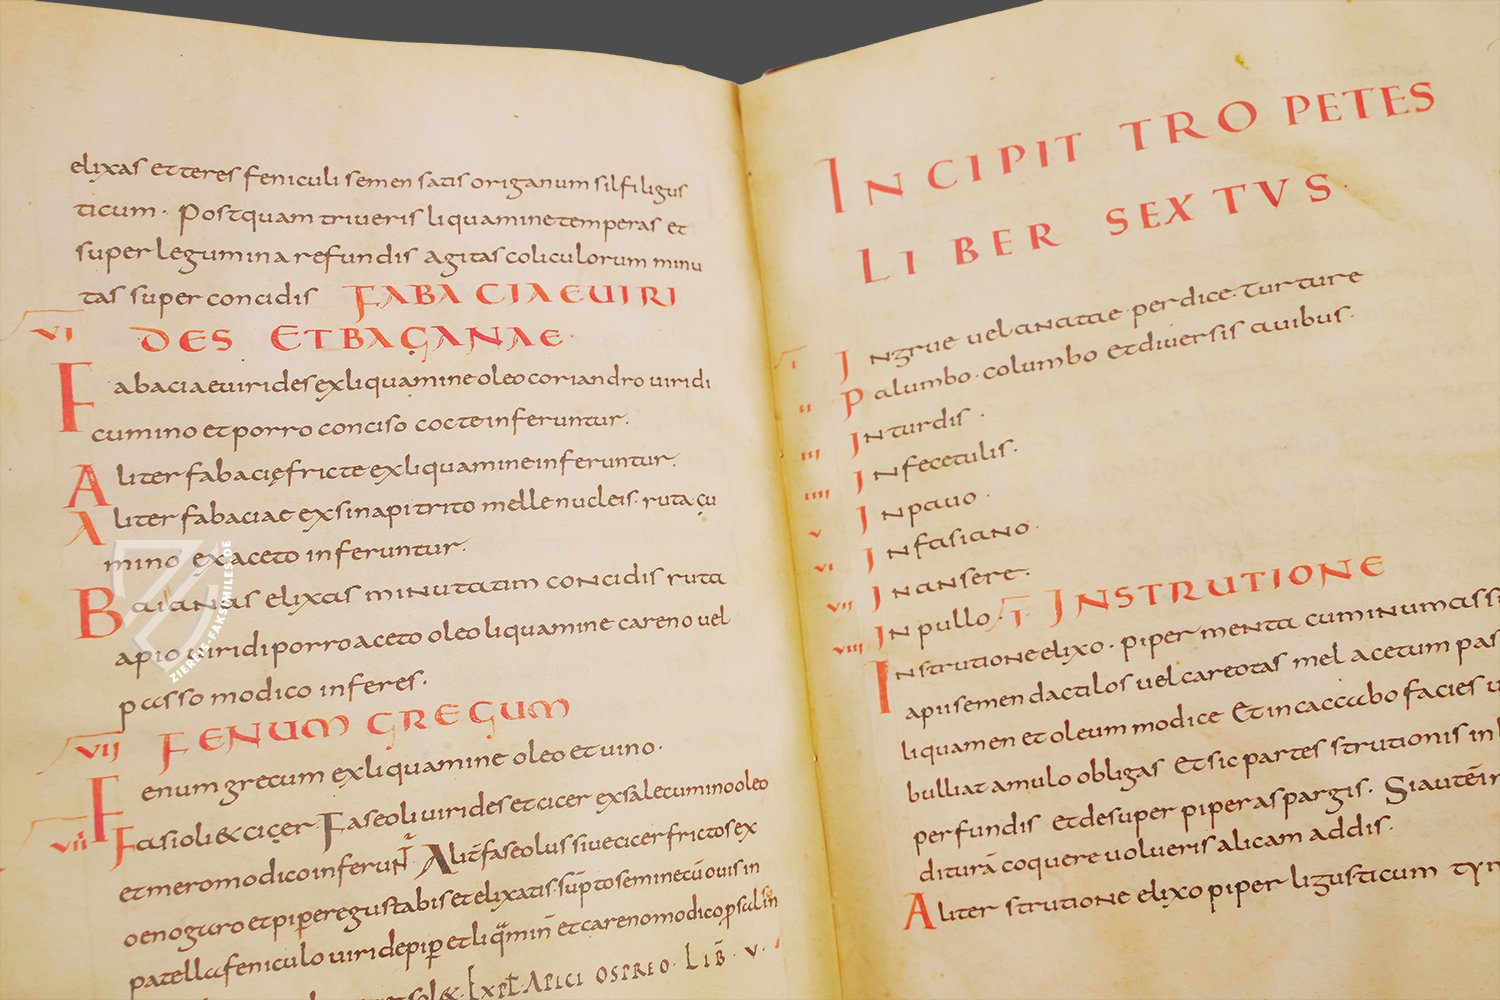 elixas et teres feniculi semen satis origanum silfi ligus
ticum · Postquam triveris liquamine temperas et
super legumina refundis agitas coliculorum minu
tas super concidis FABACIAE VIRI
VI DES ET BAGANAE ·
Fabaciae virides ex liquamine oleo coriandro viridi
cumino et porro conciso cocte inferuntur ·
Aliter fabacię fricte ex liquamine inferuntur ·
Aliter fabaciae ex sinapi trito melle nucleis · ruta cu
mino ex aceto inferuntur ·
Baianas elixas minutatim concidis ruta
apio viridi porro aceto oleo liquamine careno vel
passo modico inferes ·
VII FENUM GRECUM
Fenum grecum ex liquamine oleo et vino ·
VIII Fasioli & cicer · Faseoli virides et cicer ex sale cumino oleo
et mero modico inferunt Alit faseolus sive cicer frictos ex
oenogaro et piper e gustabis et elixatis · supto semine cū ovis in
patella feniculo viride pip et liqmin et careno modico p
EXPL APICI OSPREO · LIB · V ·
INCIPIT TROPETES
LIBER SEXTVS ·
I In grue vel anatae perdice · turture
II Palumbo · columbo et diversis avibus ·
III In turdis ·
IIII In fecetulis ·
V In pavo ·
VI In fasiano ·
VII In ansere ·
VIII In pullo · I · IN STRUTIONE
In strutione elixo · piper menta cuminum assu
apii semen dactilos vel careotas mel acetum pas
liquamen et oleum modice Et in caccabo facies u
bulliat amulo obligas Et sic partes strutionis in
perfundis et desuper piper aspargis · Si autē in
diturā coquere volueris alicam addis ·
Aliter strutione elixo piper ligusticum